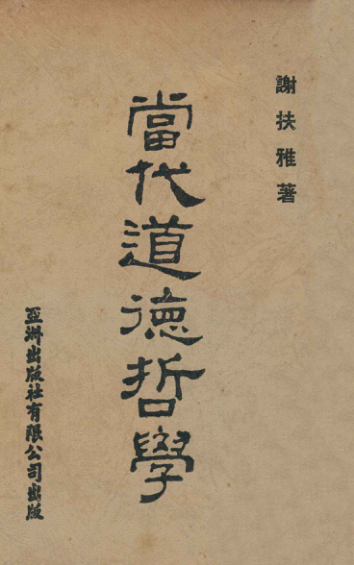 謝扶雅著
當代道德哲學
亞洲出版社有限公司出版